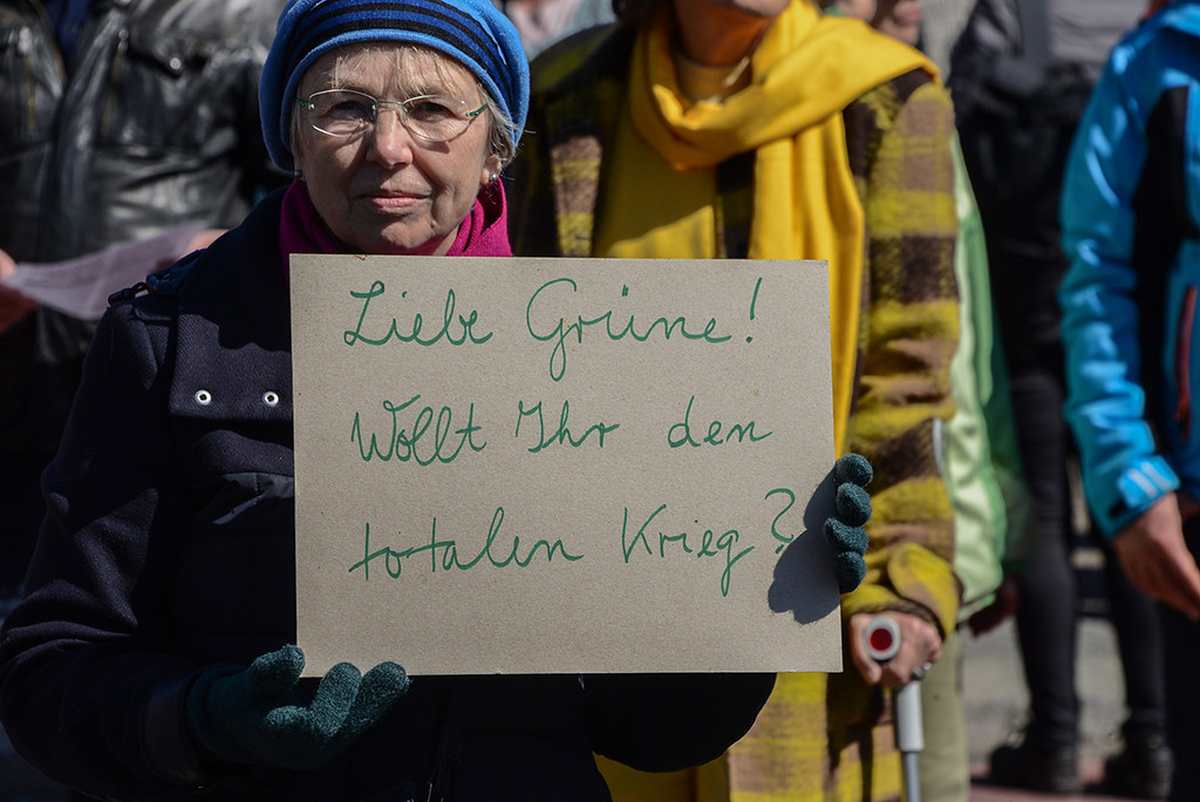 Liebe Grüne!
Wollt Ihr den
totalen Krieg?